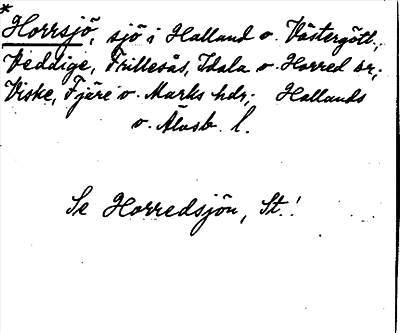 * Horrsjö, sjö i Halland o. Västergötl.,
Veddige, Frillesås, Idala o. Horred snr;
Viske, Fjäre o. Marks hdr; Hallands
o. Älvsb. l.
Se Horredsjön, St.!